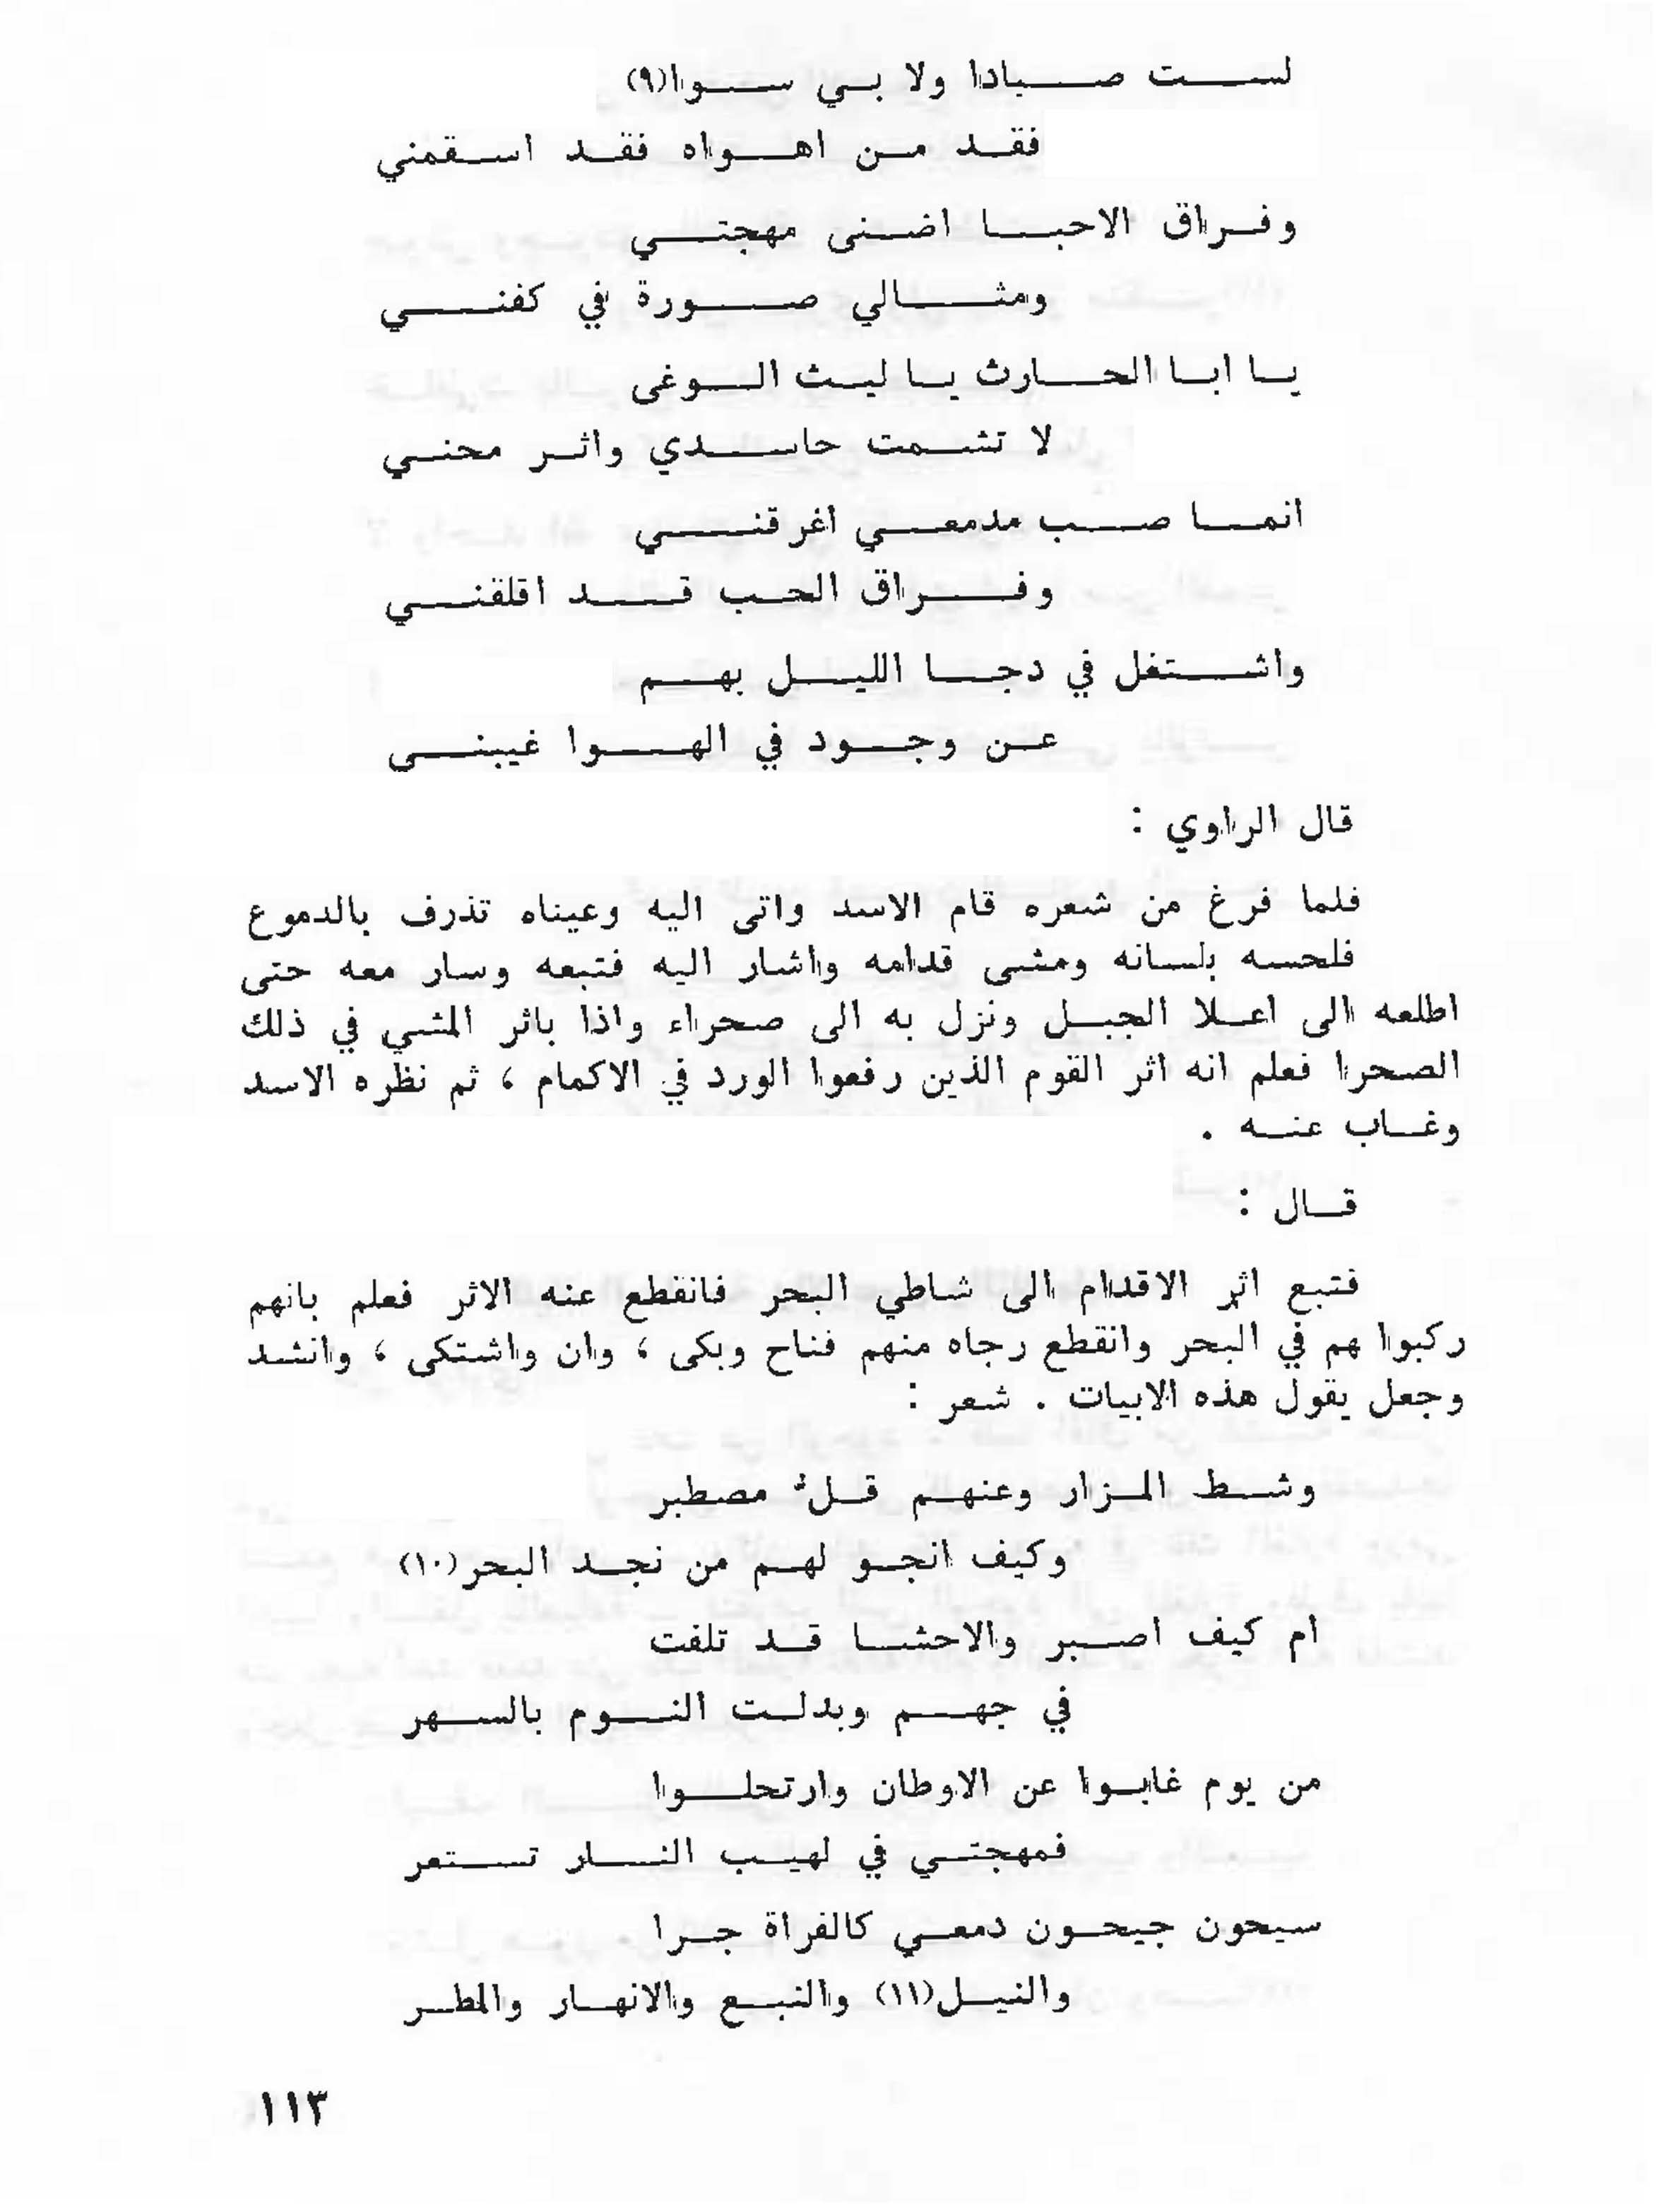 لست صبادا ولا بي سوا(٩)
فقد من اهواه فقد اسقمني
وفراق الاحبا اضنى مهجتي
ومثالي صورة في كفني
يا ابا الحارث يا ليث الوغى
لا تشمت حاسدي واثر محني
انما صب مدمعي اغرقني
وفراق الحب قد اقلقني
واشتغل في دجا الليل بهم
عن وجود في الهوا غيبنى
قال الراوي :
فلما فرغ من شعره قام الاسد واتى اليه وعيناه تذرف بالدموع
فلحسه بلسانه ومشى قدامه واشار اليه فتبعه وسار معه حتى
اطلعه الى اعلا الجبل ونزل به الى صحراء واذا باثر المشي في ذلك
الصحرا فعلم انه اثر القوم الذين رفعوا الورد في الاكمام ، ثم نظره الاسد
وغاب عنه .
قال :
فتبع اثر الاقدام الى شاطي البحر فانقطع عنه الاثر فعلم بانهم
ركبوا هم في البحر وانقطع رجاه منهم فناح وبكى ، وان واشتكى ، وانشد
وجعل يقول هذه الابيات . شعر :
وشط المزار وعنهم قلّ مصطبر
وكيف انجو لهم من نجد البحر(١٠)
ام كيف اصبر والاحشا قد تلفت
في جهم وبدلت النوم بالسهر
من يوم غابوا عن الاوطان وارتحلوا
فمهجتي في لهيب النار تستعر
سيحون جيحون دمعي كالفراة جرا
والنيل(١١) والنبع والانهار والمطر
١١٣